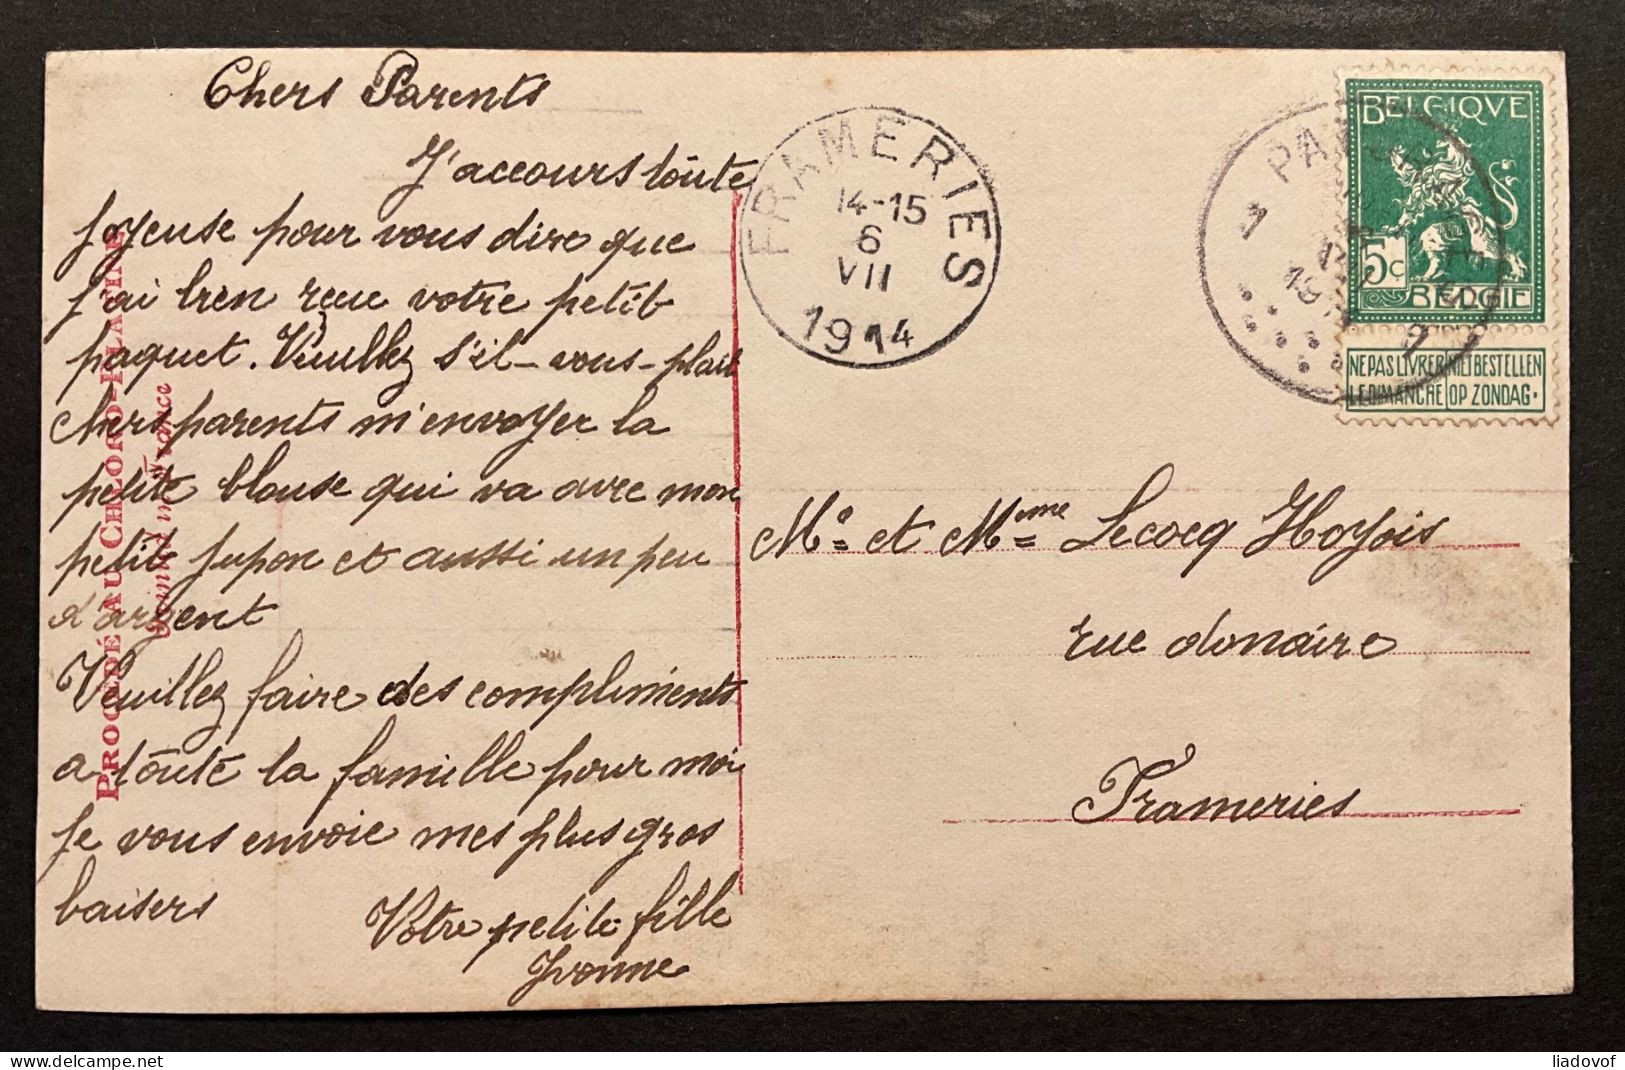 Chers Parents
J'accours toute
joyeuse pour vous dire que
j'ai bien reçu votre petit
paquet. Veuillez s'il-vous-plait
chers parents m'envoyer la
petite blouse qui va avec mon
petit jupon et aussi un peu
d'argent
Veuillez faire des compliments
a toute la famille pour moi
Je vous envoie mes plus gros
baisers
Votre petite fille
Yvonne
PROCÉDÉ AU CHLORO-PLATINE
FRAMERIES
14-15
6
VII
1914
PA
BELGIQVE
5c
BELGIE
NE PAS LIVRER LE DIMANCHE
NIET BESTELLEN OP ZONDAG.
Mr et Mme Lecocq Hoyois
rue donaire
Frameries
liadovof